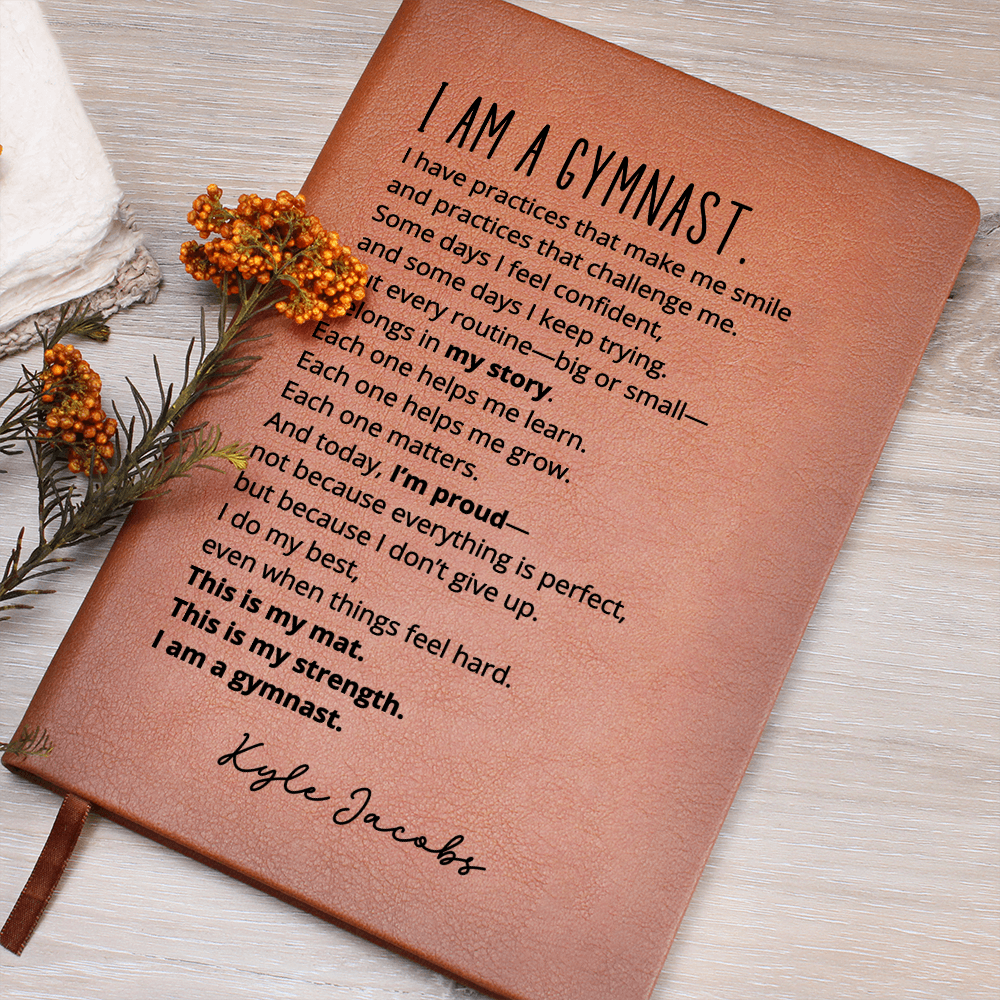 I AM A GYMNAST.
I have practices that make me smile
and practices that challenge me.
Some days I feel confident,
and some days I keep trying.
ut every routine—big or small—
elongs in my story.
Each one helps me learn.
Each one helps me grow.
Each one matters.
And today, I'm proud—
not because everything is perfect,
but because I don't give up.
I do my best,
even when things feel hard.
This is my mat.
This is my strength.
I am a gymnast.
Kyle Jacobs